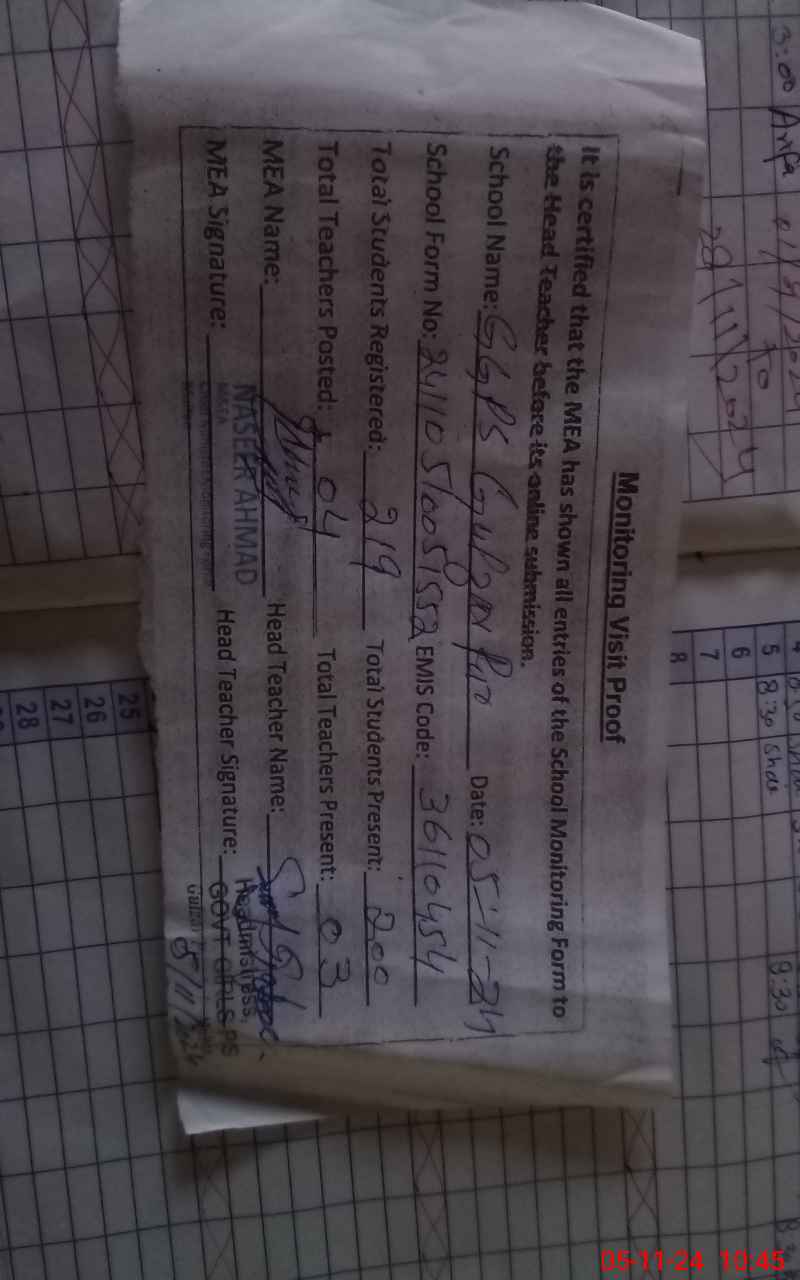 Monitoring Visit Proof
It is certified that the MEA has shown all entries of the School Monitoring Form to
the Head Teacher before its online submission.
School Name: GGPS Gulzar Pur Date: 05-11-24
School Form No: 241105100051552 EMIS Code: 36110454
Total Students Registered: 219 Total Students Present: 200
Total Teachers Posted: 04 Total Teachers Present: 03
MEA Name: Head Teacher Name:
NASEER AHMAD
Headmistress,
MEA Signature: Head Teacher Signature: GOVT GIRLS PS
MEA
5/11/24
3:00
01/11/2024
to
28/11/2024
5 8:30
6
7
8
9:30
25
26
27
28
05-11-24 10:45